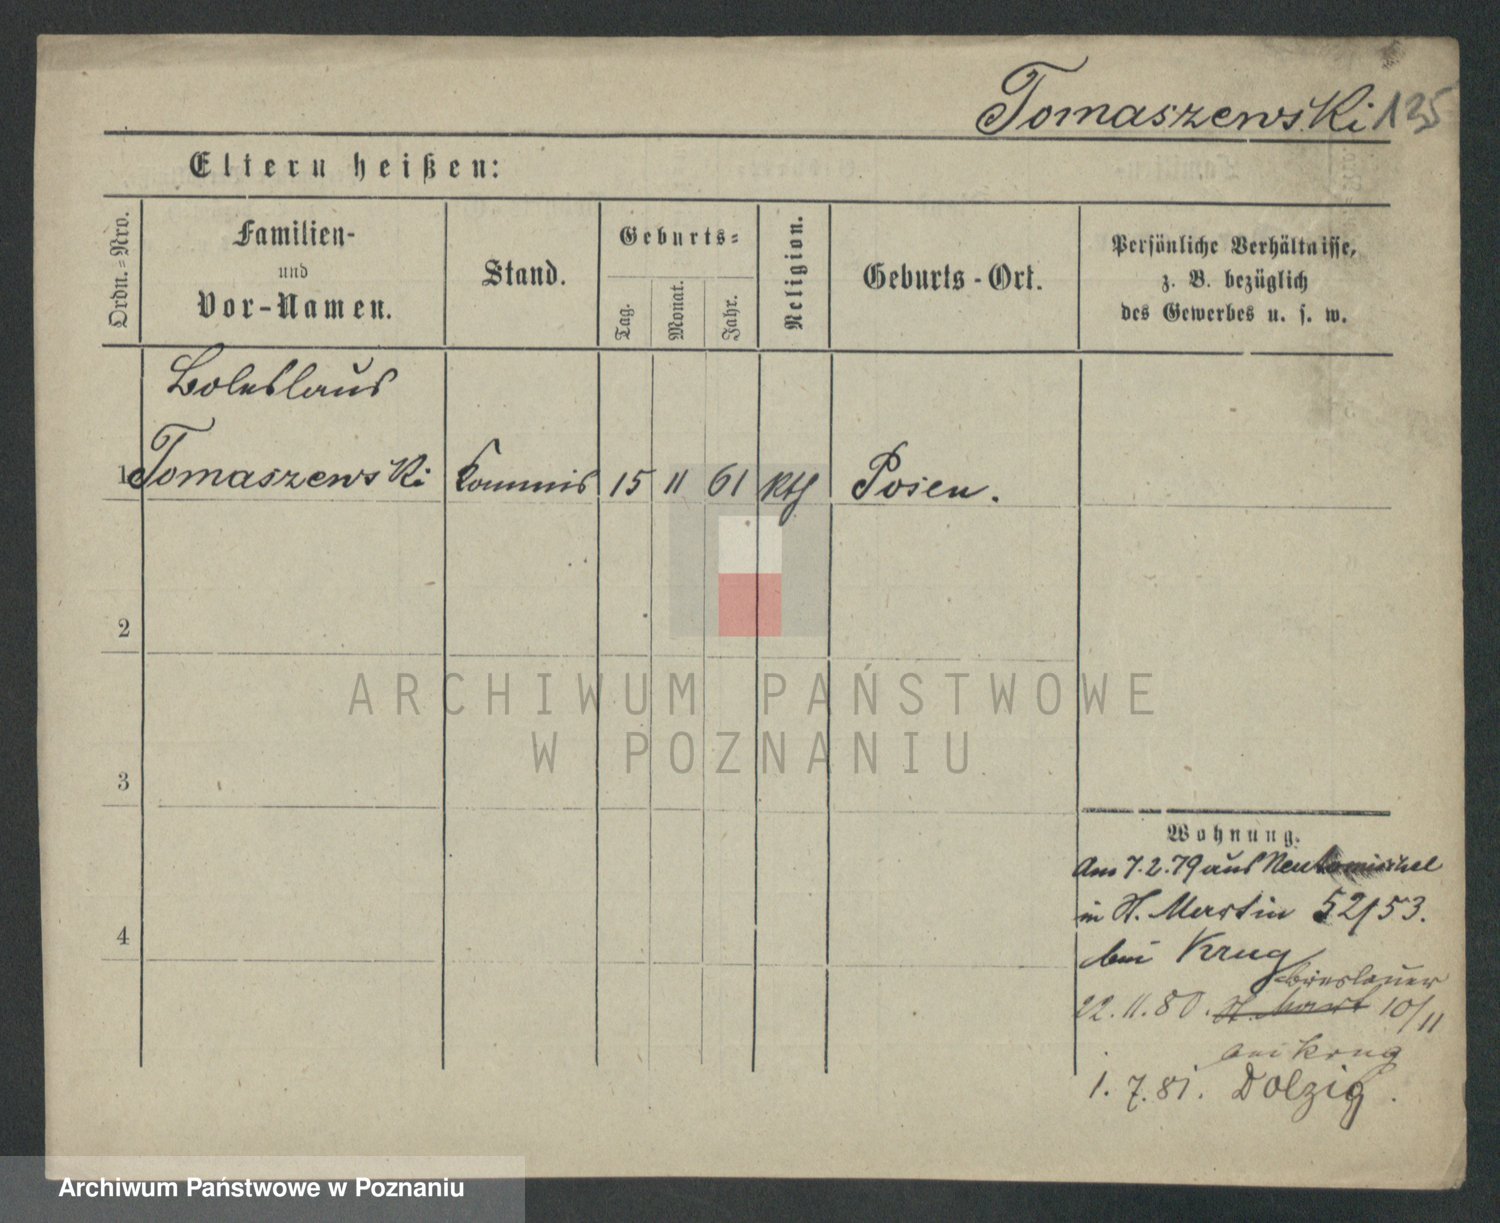 Tomaszewski 125
Eltern heißen:
Ordn.-Nro.
Familien-
und
Vor-Namen.
Stand.
Geburts-
Tag.
Monat.
Jahr.
Religion.
Geburts-Ort.
Persönliche Verhältnisse,
z. B. bezüglich
des Gewerbes u. s. w.
Boleslaus
1 Tomaszewski Commis 15 11 61 kth Posen.
2
3
4
Wohnung.
Am 7.2.79 aus Neutomischel
in St. Martin 52/53.
bei Krug
Breslauer
22.11.80. St. Mart 10/11
bei Krug
1.7.81. Dolzig.
ARCHIWUM PAŃSTWOWE
W POZNANIU
Archiwum Państwowe w Poznaniu